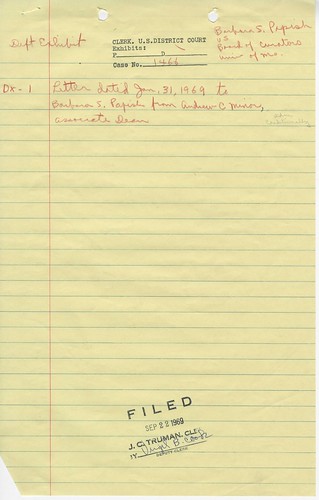 Deft Exhibit
CLERK, U.S. DISTRICT COURT
Exhibits:
P D
Case No. 1466
Barbara S. Papish
vs
Board of Curators
Univ of Mo.
DX-1 Letter dated Jan. 31, 1969 to
Barbara S. Papish from Andrew C. Minor,
associate Dean
FILED
SEP 22 1969
J. C. TRUMAN, CLERK
BY
DEPUTY CLERK